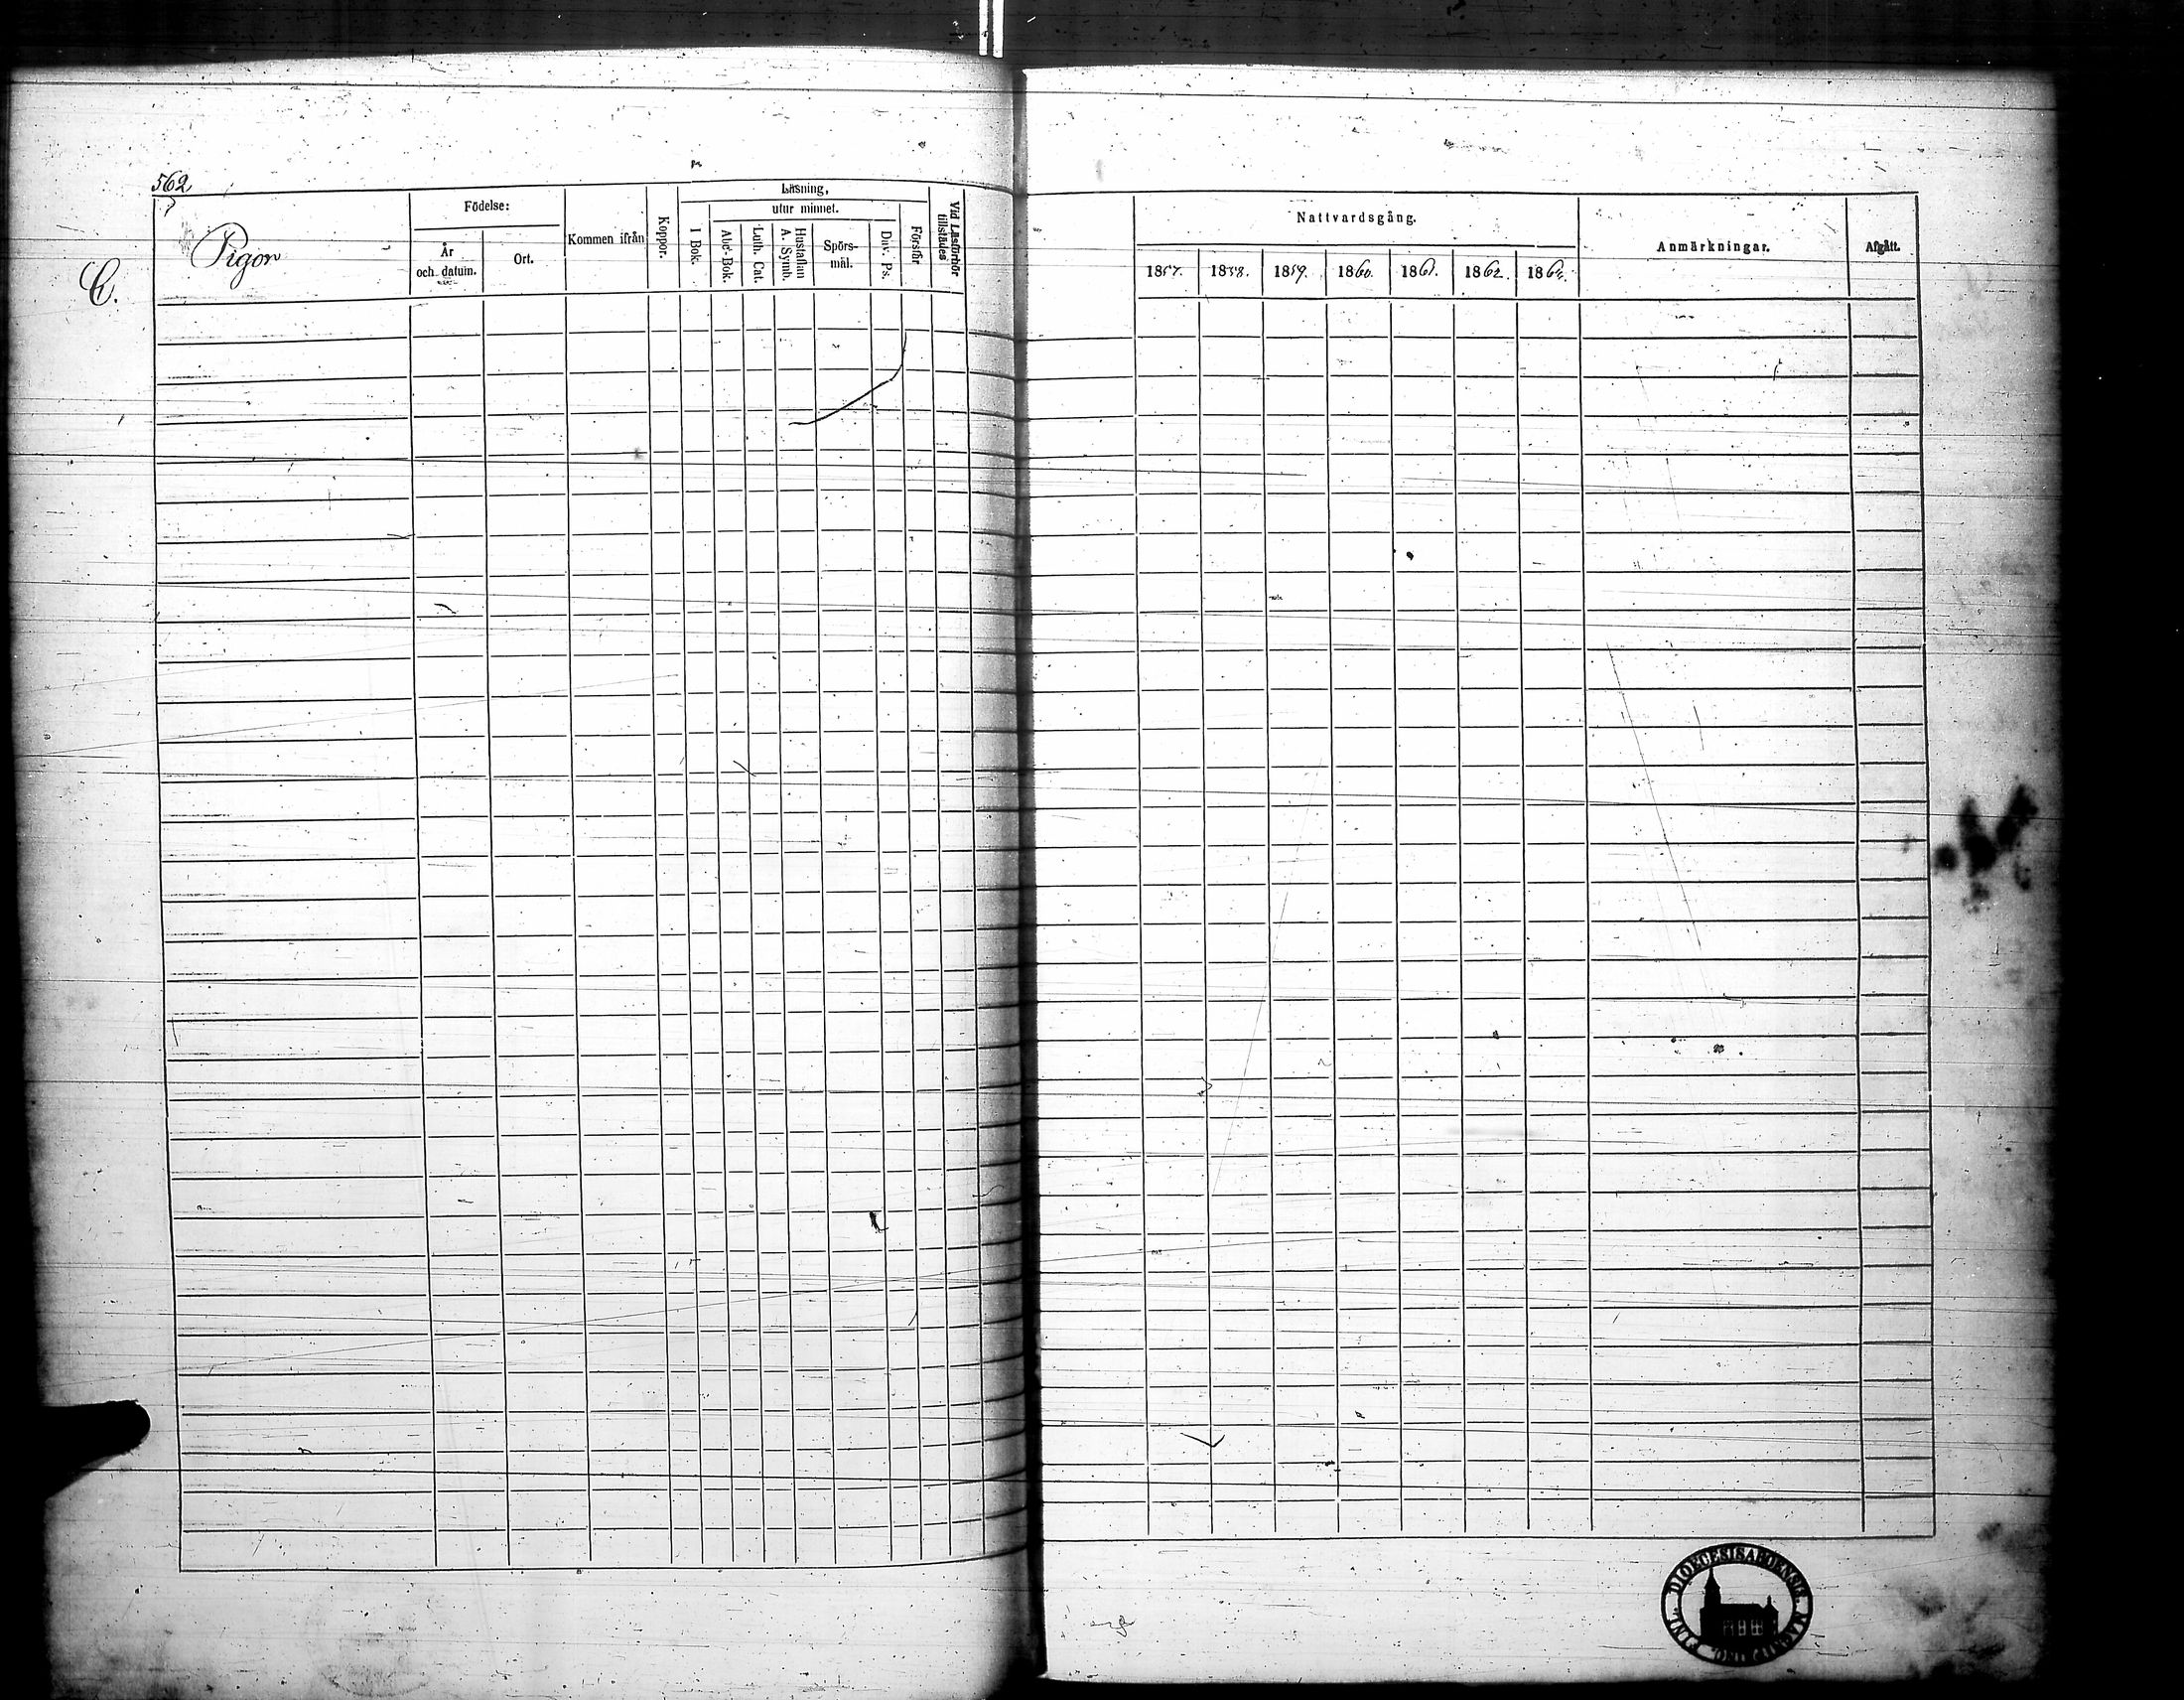 562
C.
Pigor
Födelse:
År
och datum.
Ort.
Kommen ifrån
Koppor.
Läsning,
utur minnet.
I Bok.
Abc-Bok.
Luth. Cat.
Hustaflan
A. Symb.
Spörs-
mål.
Dav. Ps.
Förstår
Vid Läsförhör
tillstädes
Nattvardsgång.
1857.
1858.
1859.
1860.
1861.
1862.
Anmärkningar.
Afgått.
DIOECESIS ABOENSIS